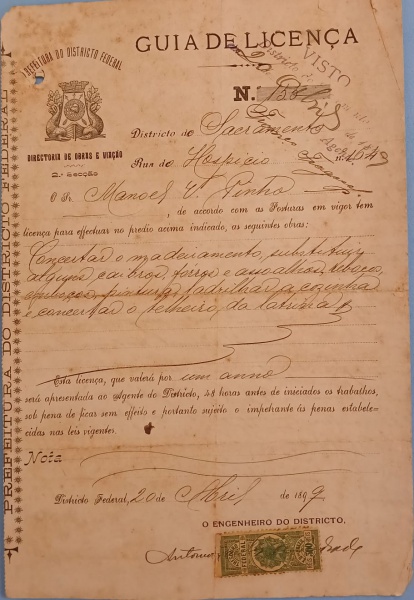 PREFEITURA DO DISTRICTO FEDERAL
GUIA DE LICENÇA
VISTO
N.
DIRECTORIA DE OBRAS E VIAÇÃO
2.ª Secção
Districto do Sacramento
Rua do Hospicio n.
O Sr. Manoel V. Pinho
, de accordo com as Posturas em vigor tem
licença para effectuar no predio acima indicado, as seguintes obras:
Concertar o madeiramento, substituir
alguns caibros, forros e assoalhos, rebocos,
pintura, ladrilhar a cozinha
e concertar o telheiro da latrina
Esta licença, que valerá por um anno
será apresentada ao Agente do Districto, 48 horas antes de iniciados os trabalhos,
sob pena de ficar sem effeito e portanto sujeito o impetrante ás penas estabele-
cidas nas leis vigentes.
Nota
Districto Federal, 20 de Abril de 1899
O ENGENHEIRO DO DISTRICTO,
Antonio
PREFEITURA DO DISTRICTO FEDERAL